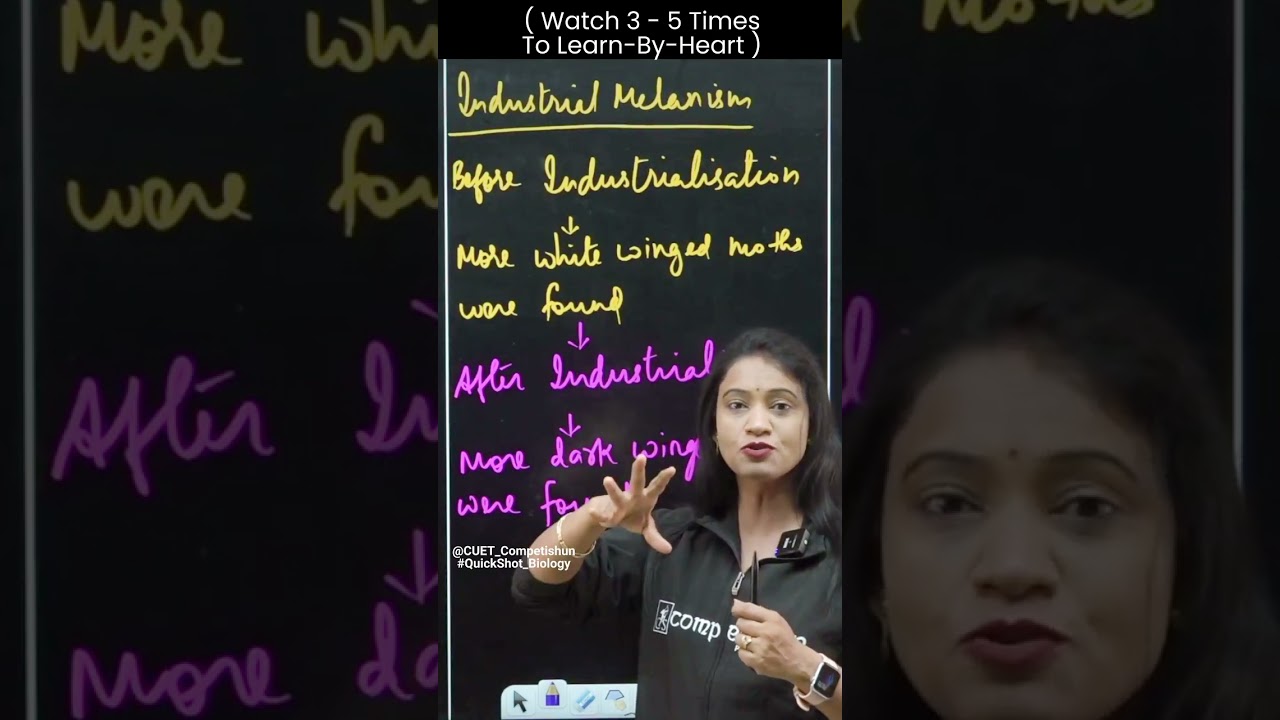 ( Watch 3 - 5 Times
To Learn-By-Heart )
Industrial Melanism
Before Industrialisation
↓
More white winged moths
were found
↓
After Industrial
↓
More dark wing
were
@CUET_Competishun
#QuickShot_Biology
comp